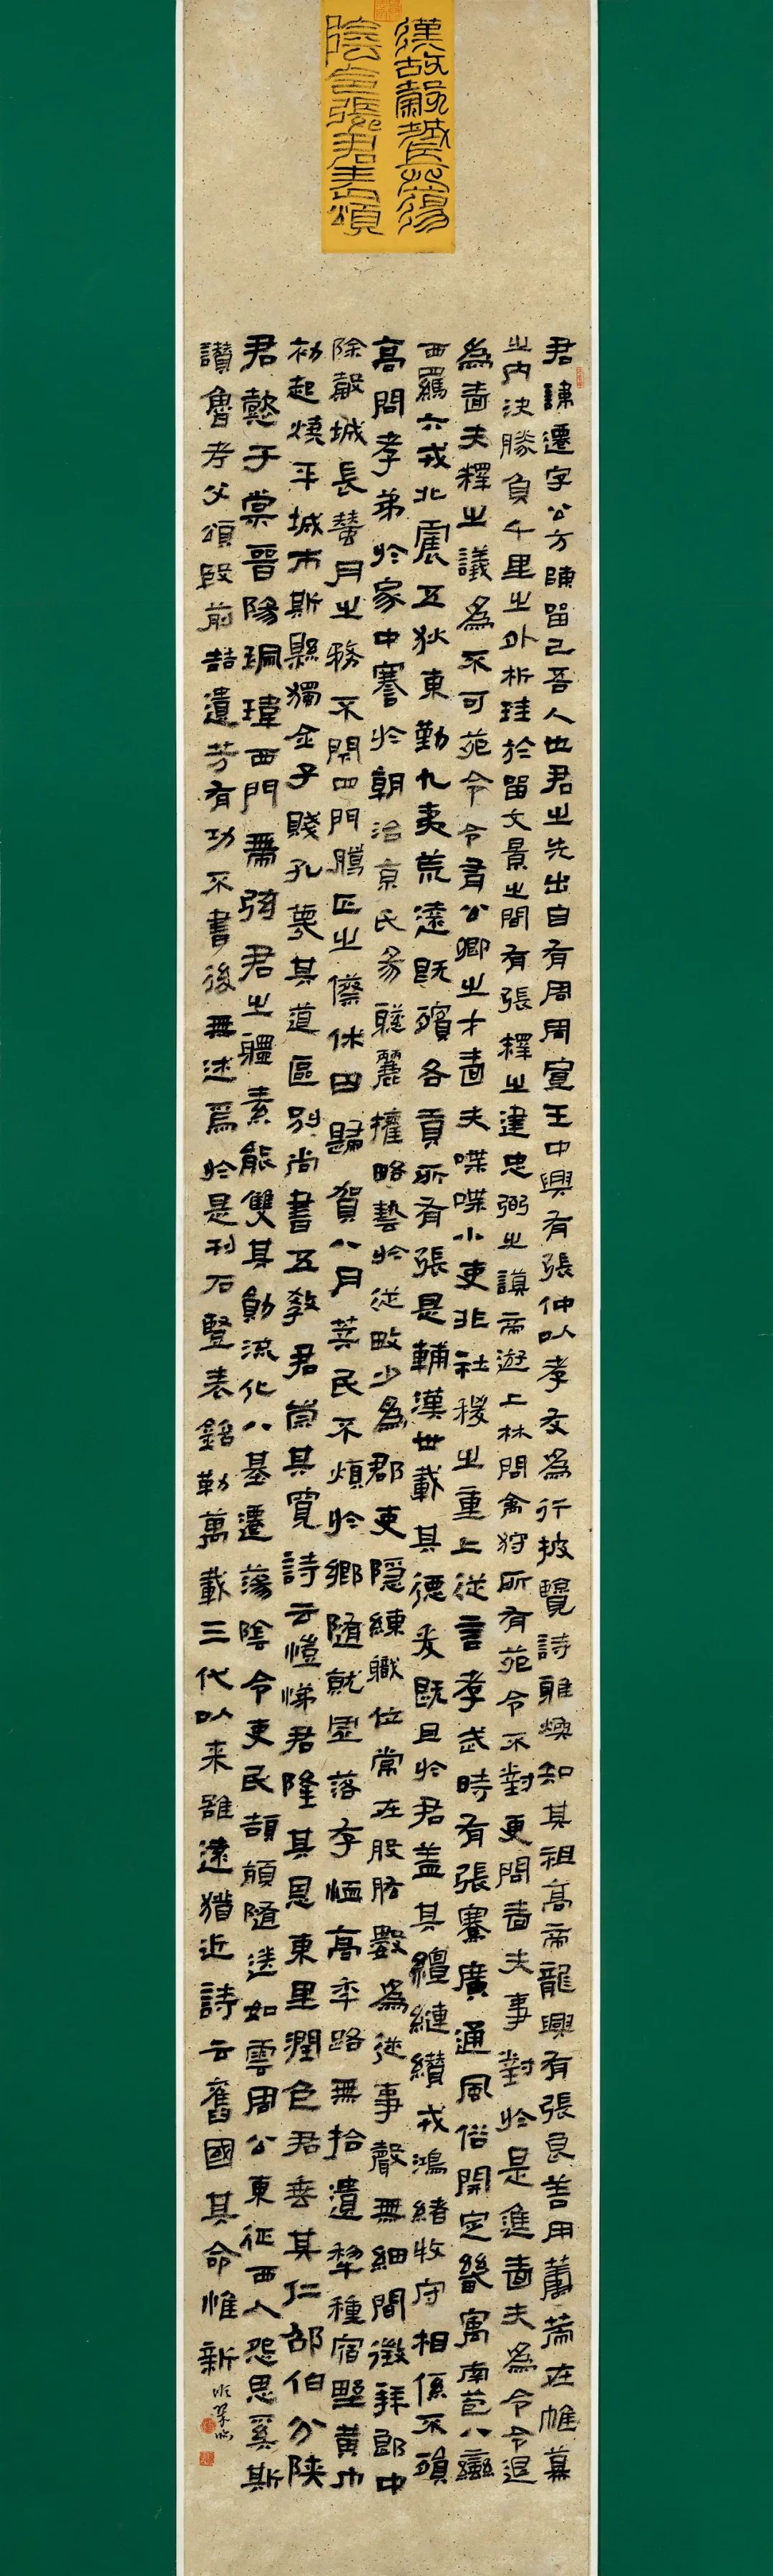 漢故穀城長蕩
陰令張君表頌
君諱遷字公方陳留己吾人也君之先出自有周周宣王中興有張仲以孝友為行披覽詩雅煥知其祖高帝龍興有張良善用籌策在帷幕
之內決勝負千里之外析珪於留文景之間有張釋之建忠弼之謨帝遊上林問禽狩所有苑令不對更問嗇夫事對於是進嗇夫為令令退
為嗇夫釋之議為不可苑令令有公卿之才嗇夫喋喋小吏非社稷之重上從言孝武時有張騫廣通風俗開定畿寓南苞八蠻
西羈六戎北震五狄東勤九夷荒遠既殯各貢所有張是輔漢世載其德爰既且於君蓋其繵縺纘戎鴻緒牧守相係不殞
高問孝弟於家中謇於朝治京氏易聰麗權略藝於從畋少為郡吏隱練職位常在股肱數為從事聲無細聞徵拜郎中
除穀城長蠶月之務不閉四門臘正之僚休囚歸賀八月算民不煩於鄉隨就虛落存恤高年路無拾遺犁種宿野黃巾
初起燒平城市斯縣獨全子賤孔蔑其道區別尚書五教君崇其寬詩云愷悌君隆其恩東里潤色君垂其仁邵伯分陝
君懿于棠晉陽珮瑋西門帶弦君之體素能雙其勛流化八基遷蕩陰令吏民頡頏隨送如雲周公東征西人怨思奚斯
讚魯考父頌殷前喆遺芳有功不書後無述焉於是刊石豎表銘勒萬載三代以來雖遠猶近詩云舊國其命惟新